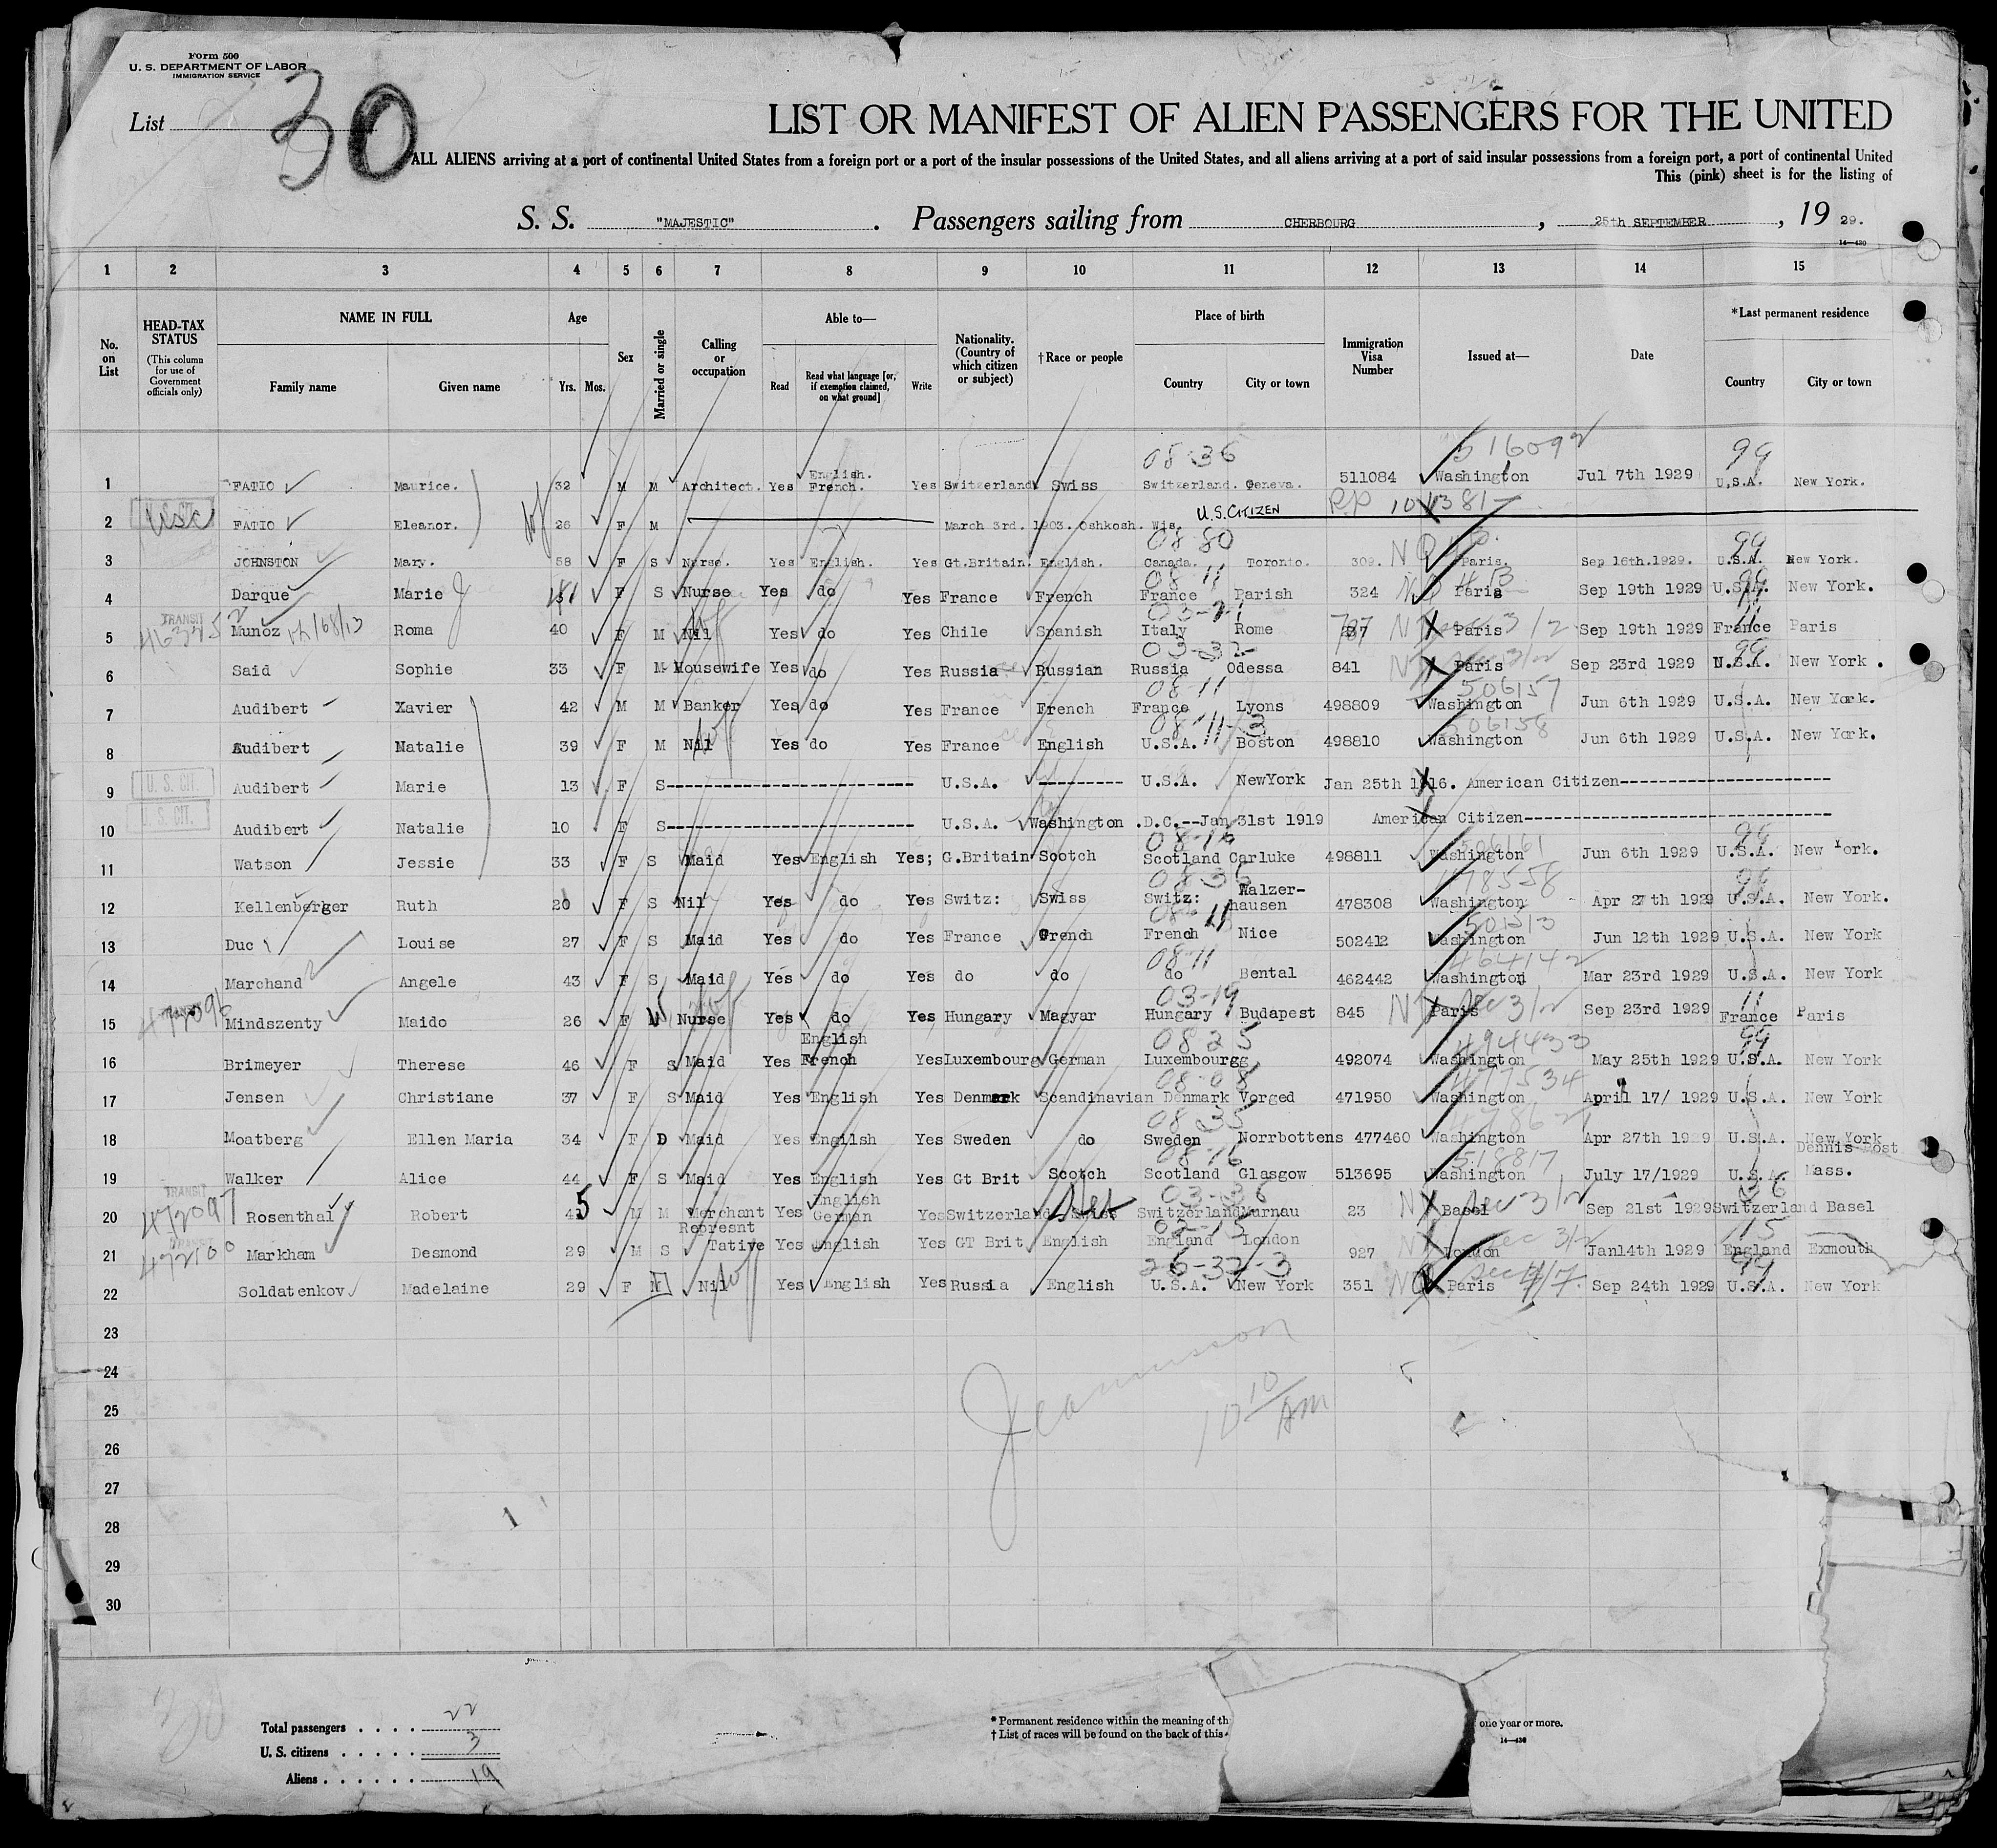 Form 500
U. S. DEPARTMENT OF LABOR
IMMIGRATION SERVICE
List 30
LIST OR MANIFEST OF ALIEN PASSENGERS FOR THE UNITED
ALL ALIENS arriving at a port of continental United States from a foreign port or a port of the insular possessions of the United States, and all aliens arriving at a port of said insular possessions from a foreign port, a port of continental United
This (pink) sheet is for the listing of
S. S. "MAJESTIC" . Passengers sailing from CHERBOURG , 25th SEPTEMBER , 19 29.
14—430
1 2 3 4 5 6 7 8 9 10 11 12 13 14 15
No. on List
HEAD-TAX STATUS
(This column for use of Government officials only)
NAME IN FULL
Family name Given name
Age
Yrs. Mos.
Sex
Married or single
Calling or occupation
Able to—
Read
Read what language [or, if exemption claimed, on what ground]
Write
Nationality. (Country of which citizen or subject)
†Race or people
Place of birth
Country City or town
Immigration Visa Number
Issued at—
Date
*Last permanent residence
Country City or town
08-36 516092 99
1 FATIO Maurice. 32 M M Architect. Yes English. French. Yes Switzerland Swiss Switzerland. Geneva. 511084 Washington Jul 7th 1929 U.S.A. New York.
2 USC FATIO Eleanor. 26 F M March 3rd. 1903. Oshkosh. Wis. U.S. CITIZEN
08-80 99
3 JOHNSTON Mary. 58 F S Nurse. Yes English. Yes Gt.Britain. English. Canada. Toronto. 309. Paris. Sep 16th.1929. U.S.A. New York.
08-11
4 Darque Marie F S Nurse Yes do Yes France French France Parish 324 Paris Sep 19th 1929 U.S.A. New York.
TRANSIT
5 Munoz Roma 40 F M Nil Yes do Yes Chile Spanish Italy Rome Paris Sep 19th 1929 France Paris
03-32 99
6 Said Sophie 33 F M Housewife Yes do Yes Russia Russian Russia Odessa 841 Paris Sep 23rd 1929 N.S.A. New York .
08-11 506157
7 Audibert Xavier 42 M M Banker Yes do Yes France French France Lyons 498809 Washington Jun 6th 1929 U.S.A. New York.
08-11-3 506158
8 Audibert Natalie 39 F M Nil Yes do Yes France English U.S.A. Boston 498810 Washington Jun 6th 1929 U.S.A. New York.
9 U. S. CIT. Audibert Marie 13 F S------------------------ U.S.A. --------- U.S.A. NewYork Jan 25th 1916. American Citizen--------------------
10 U. S. CIT. Audibert Natalie 10 F S------------------------ U.S.A. Washington .D.C.--Jan 31st 1919 American Citizen-----------------------------
08-16 99
11 Watson Jessie 33 F S Maid Yes English Yes; G.Britain Scotch Scotland Carluke 498811 Washington Jun 6th 1929 U.S.A. New York.
08 36 99
12 Kellenberger Ruth 20 F S Nil Yes do Yes Switz: Swiss Switz: Walzer-hausen 478308 Washington Apr 27th 1929 U.S.A. New York.
08-11
13 Duc Louise 27 F S Maid Yes do Yes France French French Nice 502412 Washington Jun 12th 1929 U.S.A. New York
08-11
14 Marchand Angele 43 F S Maid Yes do Yes do do do Bental 462442 Washington Mar 23rd 1929 U.S.A. New York
03-19 11
15 Mindszenty Maido 26 F W Nurse Yes do Yes Hungary Magyar Hungary Budapest 845 Paris Sep 23rd 1929 France Paris
0825 494433 99
16 Brimeyer Therese 46 F S Maid Yes English French Yes Luxembourg German Luxembourgg 492074 Washington May 25th 1929 U.S.A. New York
08-08 477534
17 Jensen Christiane 37 F S Maid Yes English Yes Denmark Scandinavian Denmark Vorged 471950 Washington April 17/ 1929 U.S.A. New York
08 35
18 Moatberg Ellen Maria 34 F D Maid Yes Engilsh Yes Sweden do Sweden Norrbottens 477460 Washington Apr 27th 1929 U.S.A. New York
08-16 518817
19 Walker Alice 44 F S Maid Yes English Yes Gt Brit Scotch Scotland Glasgow 513695 Washington July 17/1929 U.S.A. Mass.
TRANSIT 472097 03-36 36
20 Rosenthal Robert 45 M M Merchant Yes English German Yes Switzerland Swiss Switzerland Murnau 23 Basel Sep 21st 1929 Switzerland Basel
472100 02-15 15
21 Markham Desmond 29 M S Represntative Yes English Yes GT Brit English England London 927 London Jan14th 1929 England Exmouth
26-32-3 99
22 Soldatenkov Madelaine 29 F M Nil Yes English Yes Russia English U.S.A. New York 351 Paris Sep 24th 1929 U.S.A. New York
23
24
25
10 10/AM
26
27
28
29
30
Total passengers . . . . 22
U. S. citizens . . . . . 3
Aliens . . . . . . 19
* Permanent residence within the meaning of th one year or more.
† List of races will be found on the back of this
14—430